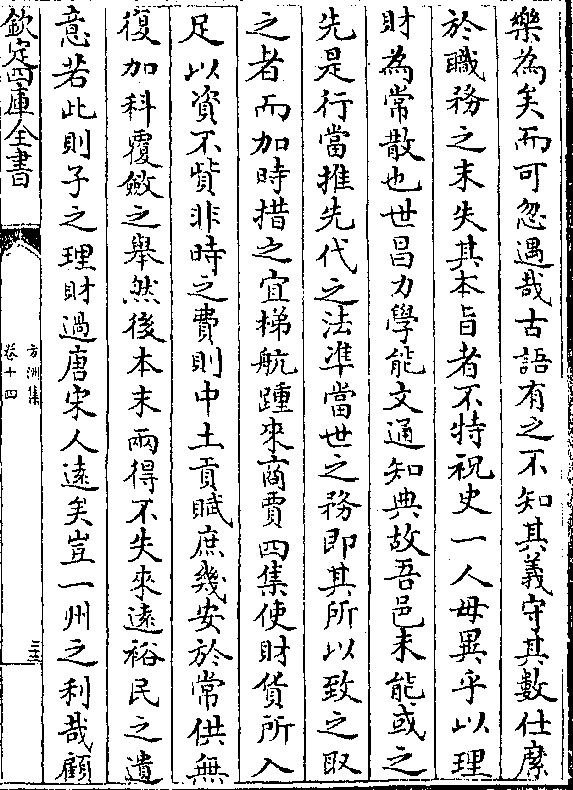 樂為矣而可忽遇哉古語有之不知其義守其數仕縻
於職務之末失其本旨者不特祝史一人毋異乎以理
財為常散也世昌力學能文通知典故吾邑未能或之
先是行當推先代之法凖當世之務即其所以致之取
之者而加時措之宜梯航踵來商賈四集使財貨所入
足以資不貲非時之費則中土貢賦庶幾安於常供無
復加科覆斂之舉然後本末兩得不失來逺裕民之遺
意若此則子之理財過唐宋人逺矣豈一州之利哉顧
欽定四庫全書
方洲集
卷十四
三十三